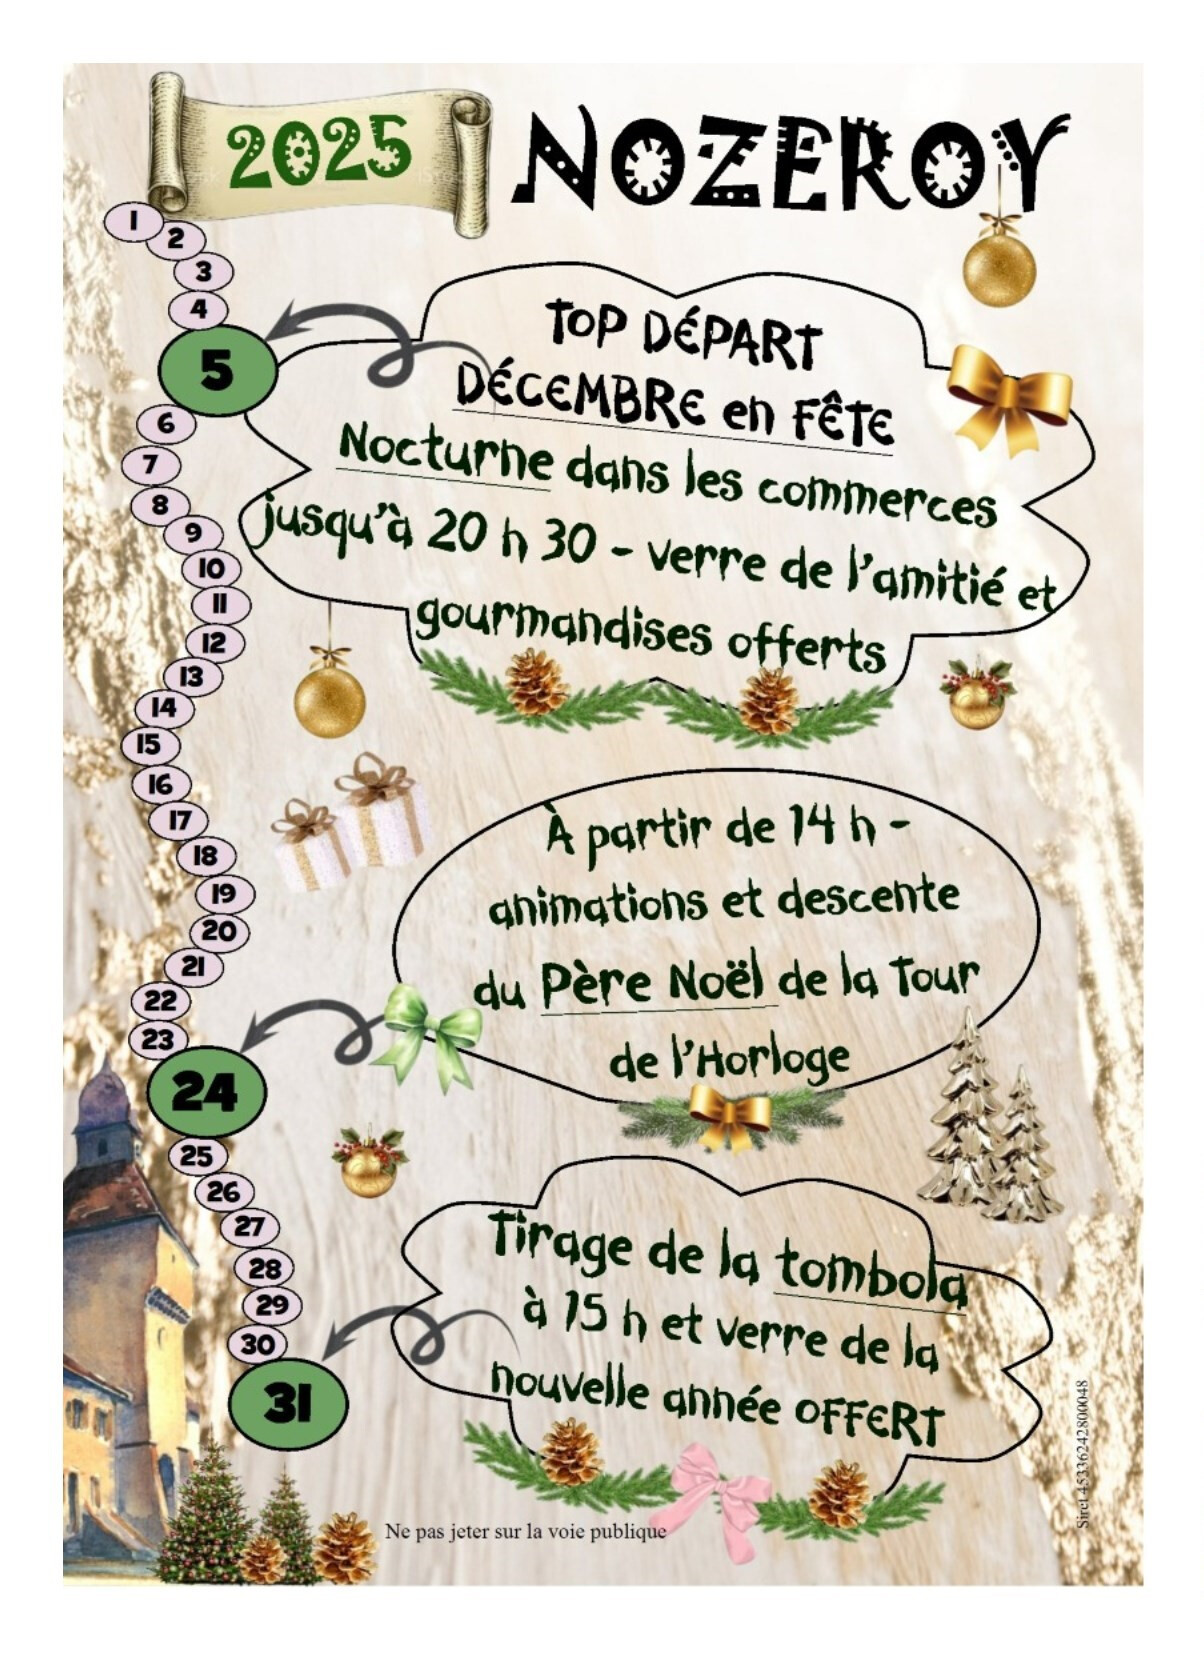 2025
NOZEROY
1
2
3
4
5
TOP DÉPART
DÉCEMBRE en FÊTE
Nocturne dans les commerces
jusqu'à 20 h 30 - verre de l'amitié et
gourmandises offerts
6
7
8
9
10
11
12
13
14
15
16
17
18
19
20
21
22
23
24
À partir de 14 h -
animations et descente
du Père Noël de la Tour
de l'Horloge
25
26
27
28
29
30
31
Tirage de la tombola
à 15 h et verre de la
nouvelle année OFFERT
Ne pas jeter sur la voie publique
Siret 45336242800048